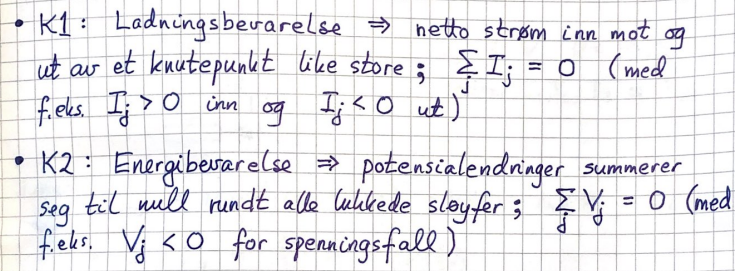 • K1: Ladningsbevarelse ⇒ netto strøm inn mot og
ut av et knutepunkt like store; ∑_j I_j = 0 (med
f.eks. I_j > 0 inn og I_j < 0 ut)
• K2: Energibevarelse ⇒ potensialendringer summerer
seg til null rundt alle lukkede sløyfer; ∑_j V_j = 0 (med
f.eks. V_j < 0 for spenningsfall)